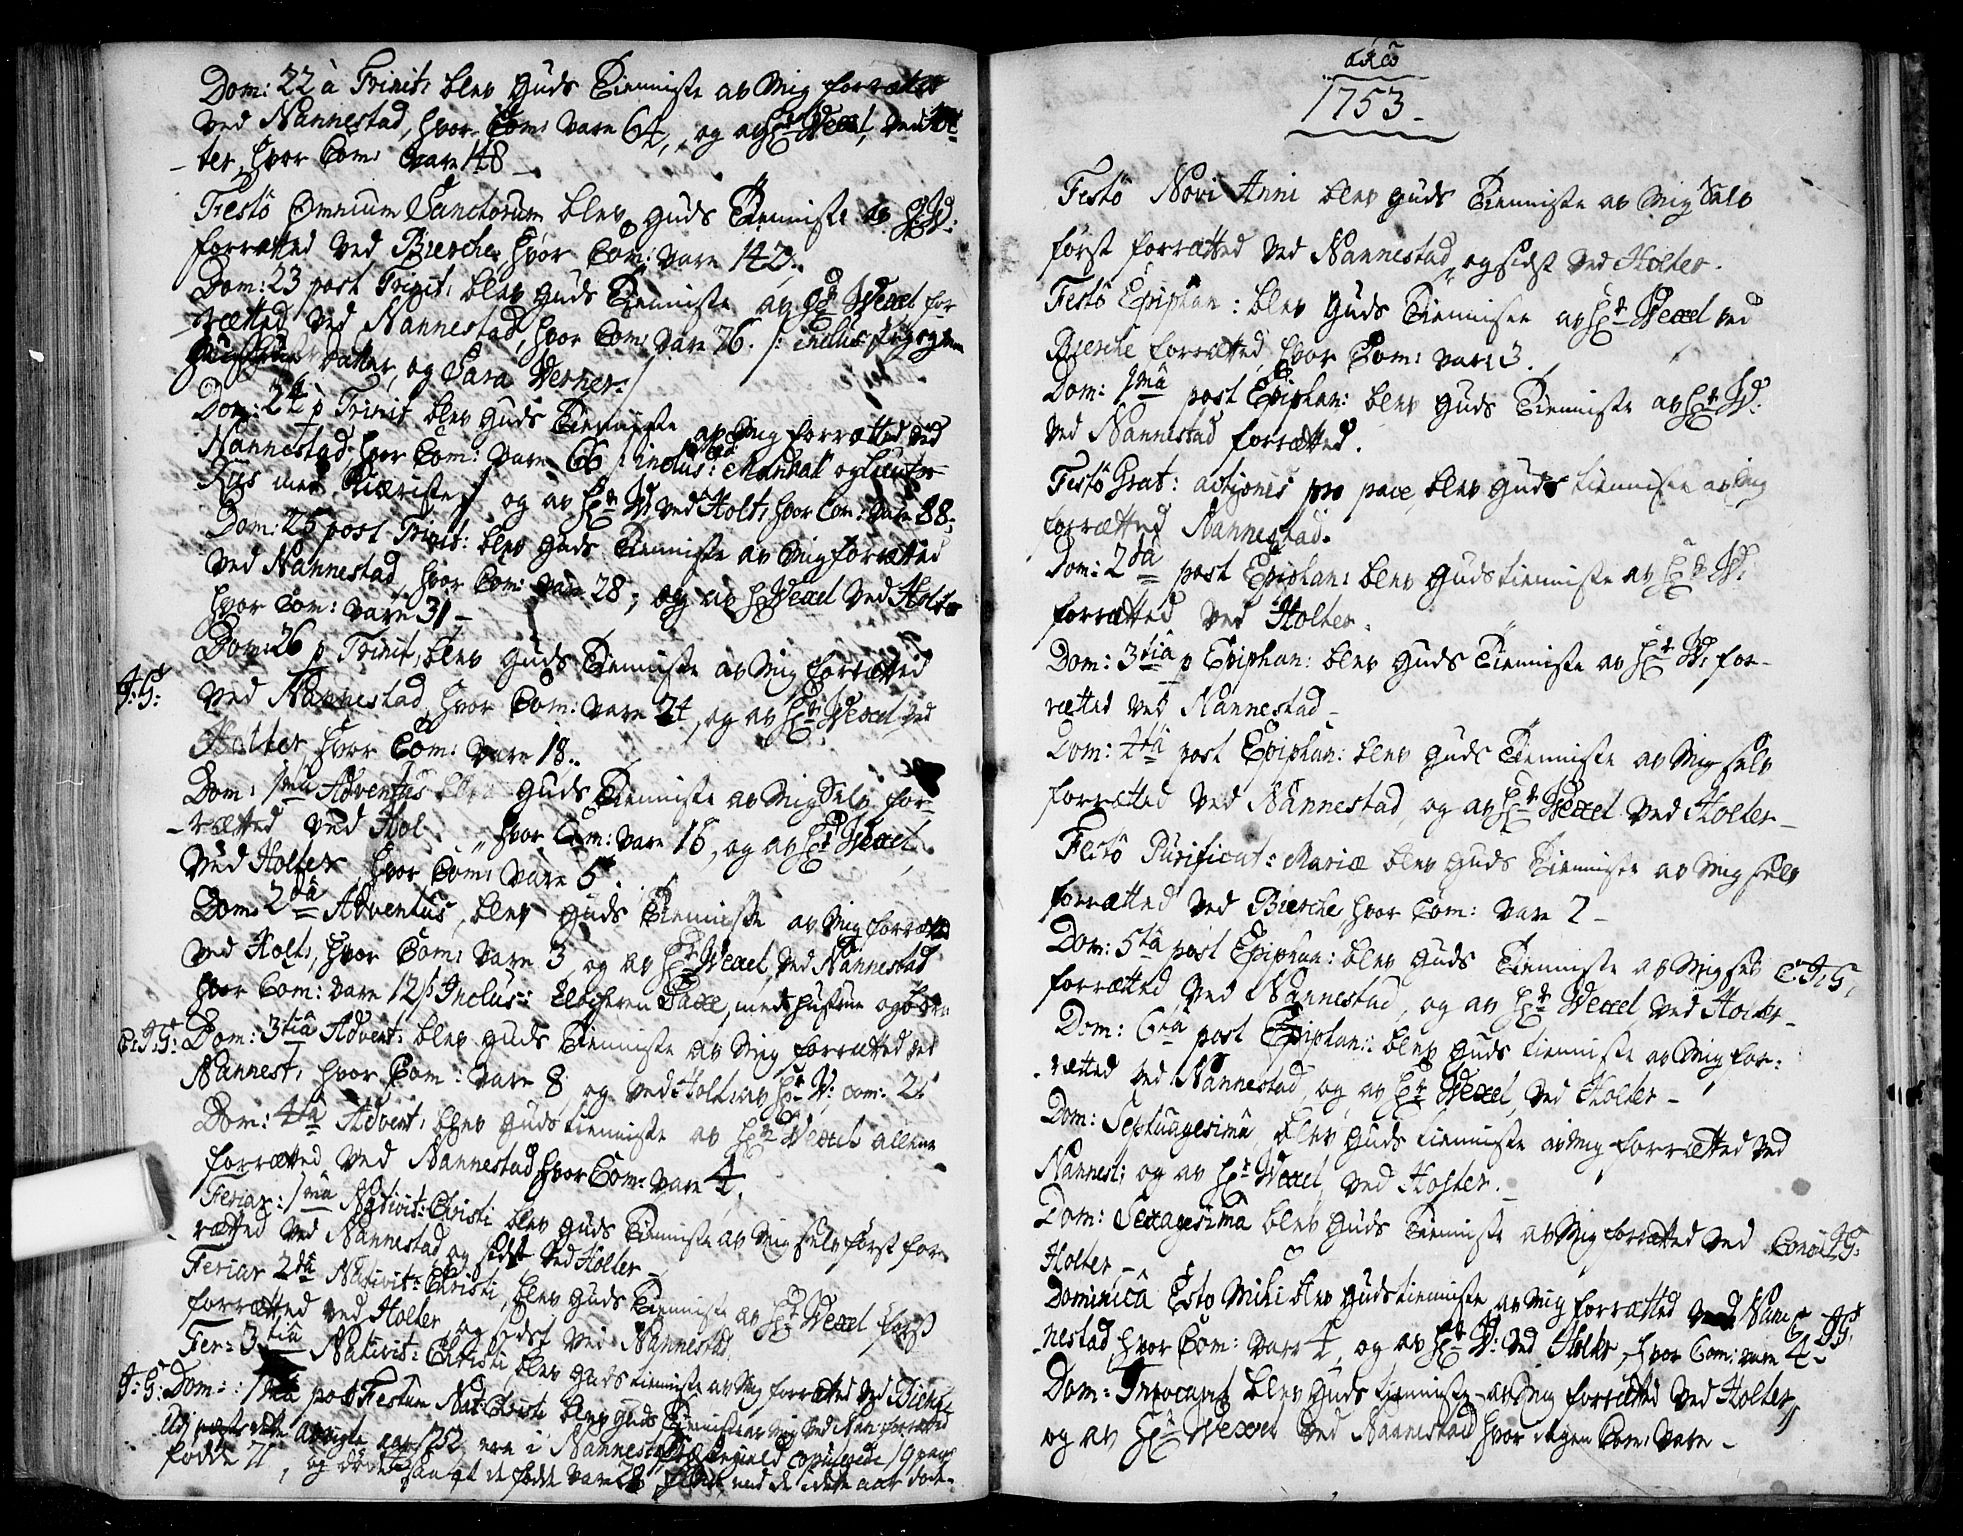 Dom: 22 à Trinit: blev Guds Tienniste av Mig forrættet
ved Nannestad, hvor Com: vare 64, og av Hr Wexel, ved Hol-
ter, hvor Com: vare 148
Festö Omnium Sanctorum blev Guds Tienniste av H: W:
forrætted ved Bierche, hvor Com: vare 142.
Dom: 23 post Trinit: blev Guds Tienniste av Hr Wexel for
rætted ved Nannestad, hvor Com: vare 76. /: inclus:
datter, og Sara Werner :/
Dom: 24 p Trinit blev Guds Tienniste av Mig forrætted ved
Nannestad, hvor Com: vare 66 /: inclus: Manball og
Riis med Kiæriste :/ og av Hr W: ved Holt: hvor Com: vare 88.
Dom: 25 post Trinit: blev Guds Tienniste av Mig forrætted
ved Nannestad, hvor Com: vare 28; og av Hr Wexel ved Holter
hvor Com: vare 31 -
Dom: 26 p Trinit, blev Guds Tienniste av Mig forrætted
J: G: ved Nannestad, hvor Com: vare 24, og av Hr Wexel ved
Holter hvor Com: vare 18.
Dom: 1mâ Adventus blev Guds Tienniste av Mig Selv for-
-rætted ved Hol hvor Com: vare 16, og av Hr Wexel
ved Holter, hvor Com: vare 5.
Dom: 2dâ Adventus, blev Guds Tienniste av Mig forrætted
ved Holt:, hvor Com: vare 3, og av Hr Wexel, ved Nannestad
hvor Com: vare 12 /: Inclus: Klocheren Saxe, med hustrue og børn
C: J: G: Dom: 3tiâ Advent: blev Guds Tienniste av Mig forrætted ved
Nannest: hvor Com: vare 8, og ved Holt: av Hr W: com: 2.
Dom: 4tâ Advent: blev Guds tienniste av Hr Wexel allene
forrætted ved Nannestad hvor Com: vare 4.
Feriar: 1mâ Nativit: Christi blev Guds Tienniste av Mig selv først for-
- rætted ved Nannestad og sidst ved Holter -
Feriar 2dâ Nativit: Christi, blev Guds Tienniste av Hr Wexel først
forrætted ved Holter og sidst ved Nannestad.
Fer: 3tiâ Nativit: Christi blev Guds tienniste av Mig forrætted ved Bierche
J: G: Dom: 1mâ post Festum Nat: Christi blev Guds Tienniste av Mig ved Nan: forrætted
Udi aar 1752 ere i Nannestad Præstegield copulerede 19 par
fødde 71, og døde saa at de fødde vare 28 fleere, end de i dette aar døde.
1753 -
Festö Novi Anni blev Guds Tienniste av Mig Selv
først forrætted ved Nannestad, og sidst ved Holter.
Festö Epiphan: blev Guds Tienniste av Hr Wexel ved
Bierche forrætted, hvor Com: vare 3.
Dom: 1mâ post Epiphan: blev Guds Tienniste av Hr W:
ved Nannestad forrætted.
Festö Grat: actiones pro pace, blev Guds tienniste av Mig
forrætted Nannestad.
Dom: 2dâ post Epiphan: blev Guds tienniste av Hr W:
forrætted ved Holter.
Dom: 3tiâ p Epiphan: blev Guds Tienniste av Hr W: for-
rætted ved Nannestad -
Dom: 4tâ post Epiphan: blev Guds Tienniste av Mig selv
forrætted ved Nannestad, og av Hr Wexel ved Holter -
Festö Purificat: Mariæ blev Guds Tienniste av Mig selv
forrætted ved Bierche hvor Com: vare 2 -
Dom: 5tâ post Epiphan: blev Guds Tienniste av Mig selv C: J: G:
forrætted ved Nannestad, og av Hr Wexel ved Holter -
Dom: 6tâ post Epiphan: blev Guds tienniste av Mig for-
- rætted ved Nannestad, og av Hr Wexel, ved Holter -
Dom: Septuagesimâ blev Guds tienniste av Mig forrætted ved
Nannest: og av Hr Wexel ved Holter. -
Dom: Sexagesimâ blev Guds Tienniste av Mig forrætted ved J: G:
Holter -
Dominicâ Esto Mihi blev Guds tienniste av Mig forrætted ved Nan-
-nestad, hvor Com: vare 4, og av Hr W: ved Holter, hvor Com: vare 4 - C: J: G:
Dom: Invocavit blev Guds tienniste av Mig forrætted ved Holter,
og av Hr Wexel ved Nannestad hvor ingen Com: vare -